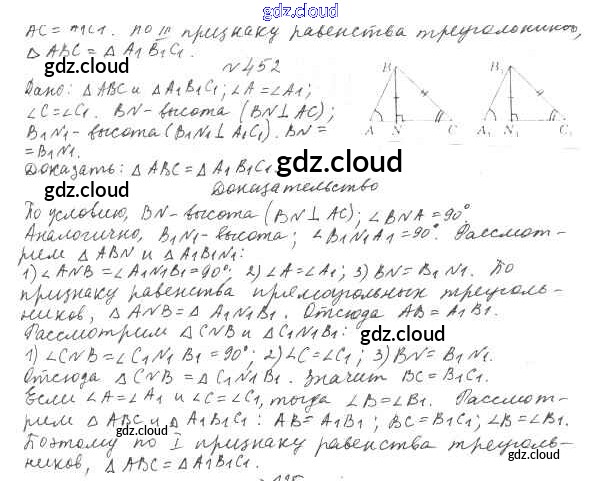 gdz.cloud
AC = A1C1. По III признаку равенства треугольников,
△ ABC = △ A1B1C1.
gdz.cloud
N 452
gdz.cloud
Дано: △ ABC и △ A1B1C1; ∠A = ∠A1;
∠C = ∠C1. BN - высота (BN ⊥ AC);
B1N1 - высота (B1N1 ⊥ A1C1). BN =
= B1N1.
B
B1
A N C A1 N1 C1
gdz.cloud
Доказать: △ ABC = △ A1B1C1.
gdz.cloud
Доказательство
По условию, BN - высота (BN ⊥ AC); ∠BNA = 90°.
gdz.cloud
Аналогично, B1N1 - высота; ∠B1N1A1 = 90°. Рассмот-
рим △ ABN и △ A1B1N1:
gdz.cloud
1) ∠ANB = ∠A1N1B1 = 90°; 2) ∠A = ∠A1; 3) BN = B1N1. По
признаку равенства прямоугольных треуголь-
ников, △ ANB = △ A1N1B1. Отсюда AB = A1B1.
gdz.cloud
Рассмотрим △ CNB и △ C1N1B1:
gdz.cloud
1) ∠CNB = ∠C1N1B1 = 90°; 2) ∠C = ∠C1; 3) BN = B1N1.
Отсюда △ CNB = △ C1N1B1. Значит BC = B1C1.
Если ∠A = ∠A1 и ∠C = ∠C1, тогда ∠B = ∠B1. Рассмот-
рим △ ABC и △ A1B1C1: AB = A1B1; BC = B1C1; ∠B = ∠B1.
gdz.cloud
Поэтому по I признаку равенства треуголь-
ников, △ ABC = △ A1B1C1.
gdz.cloud
gdz.cloud